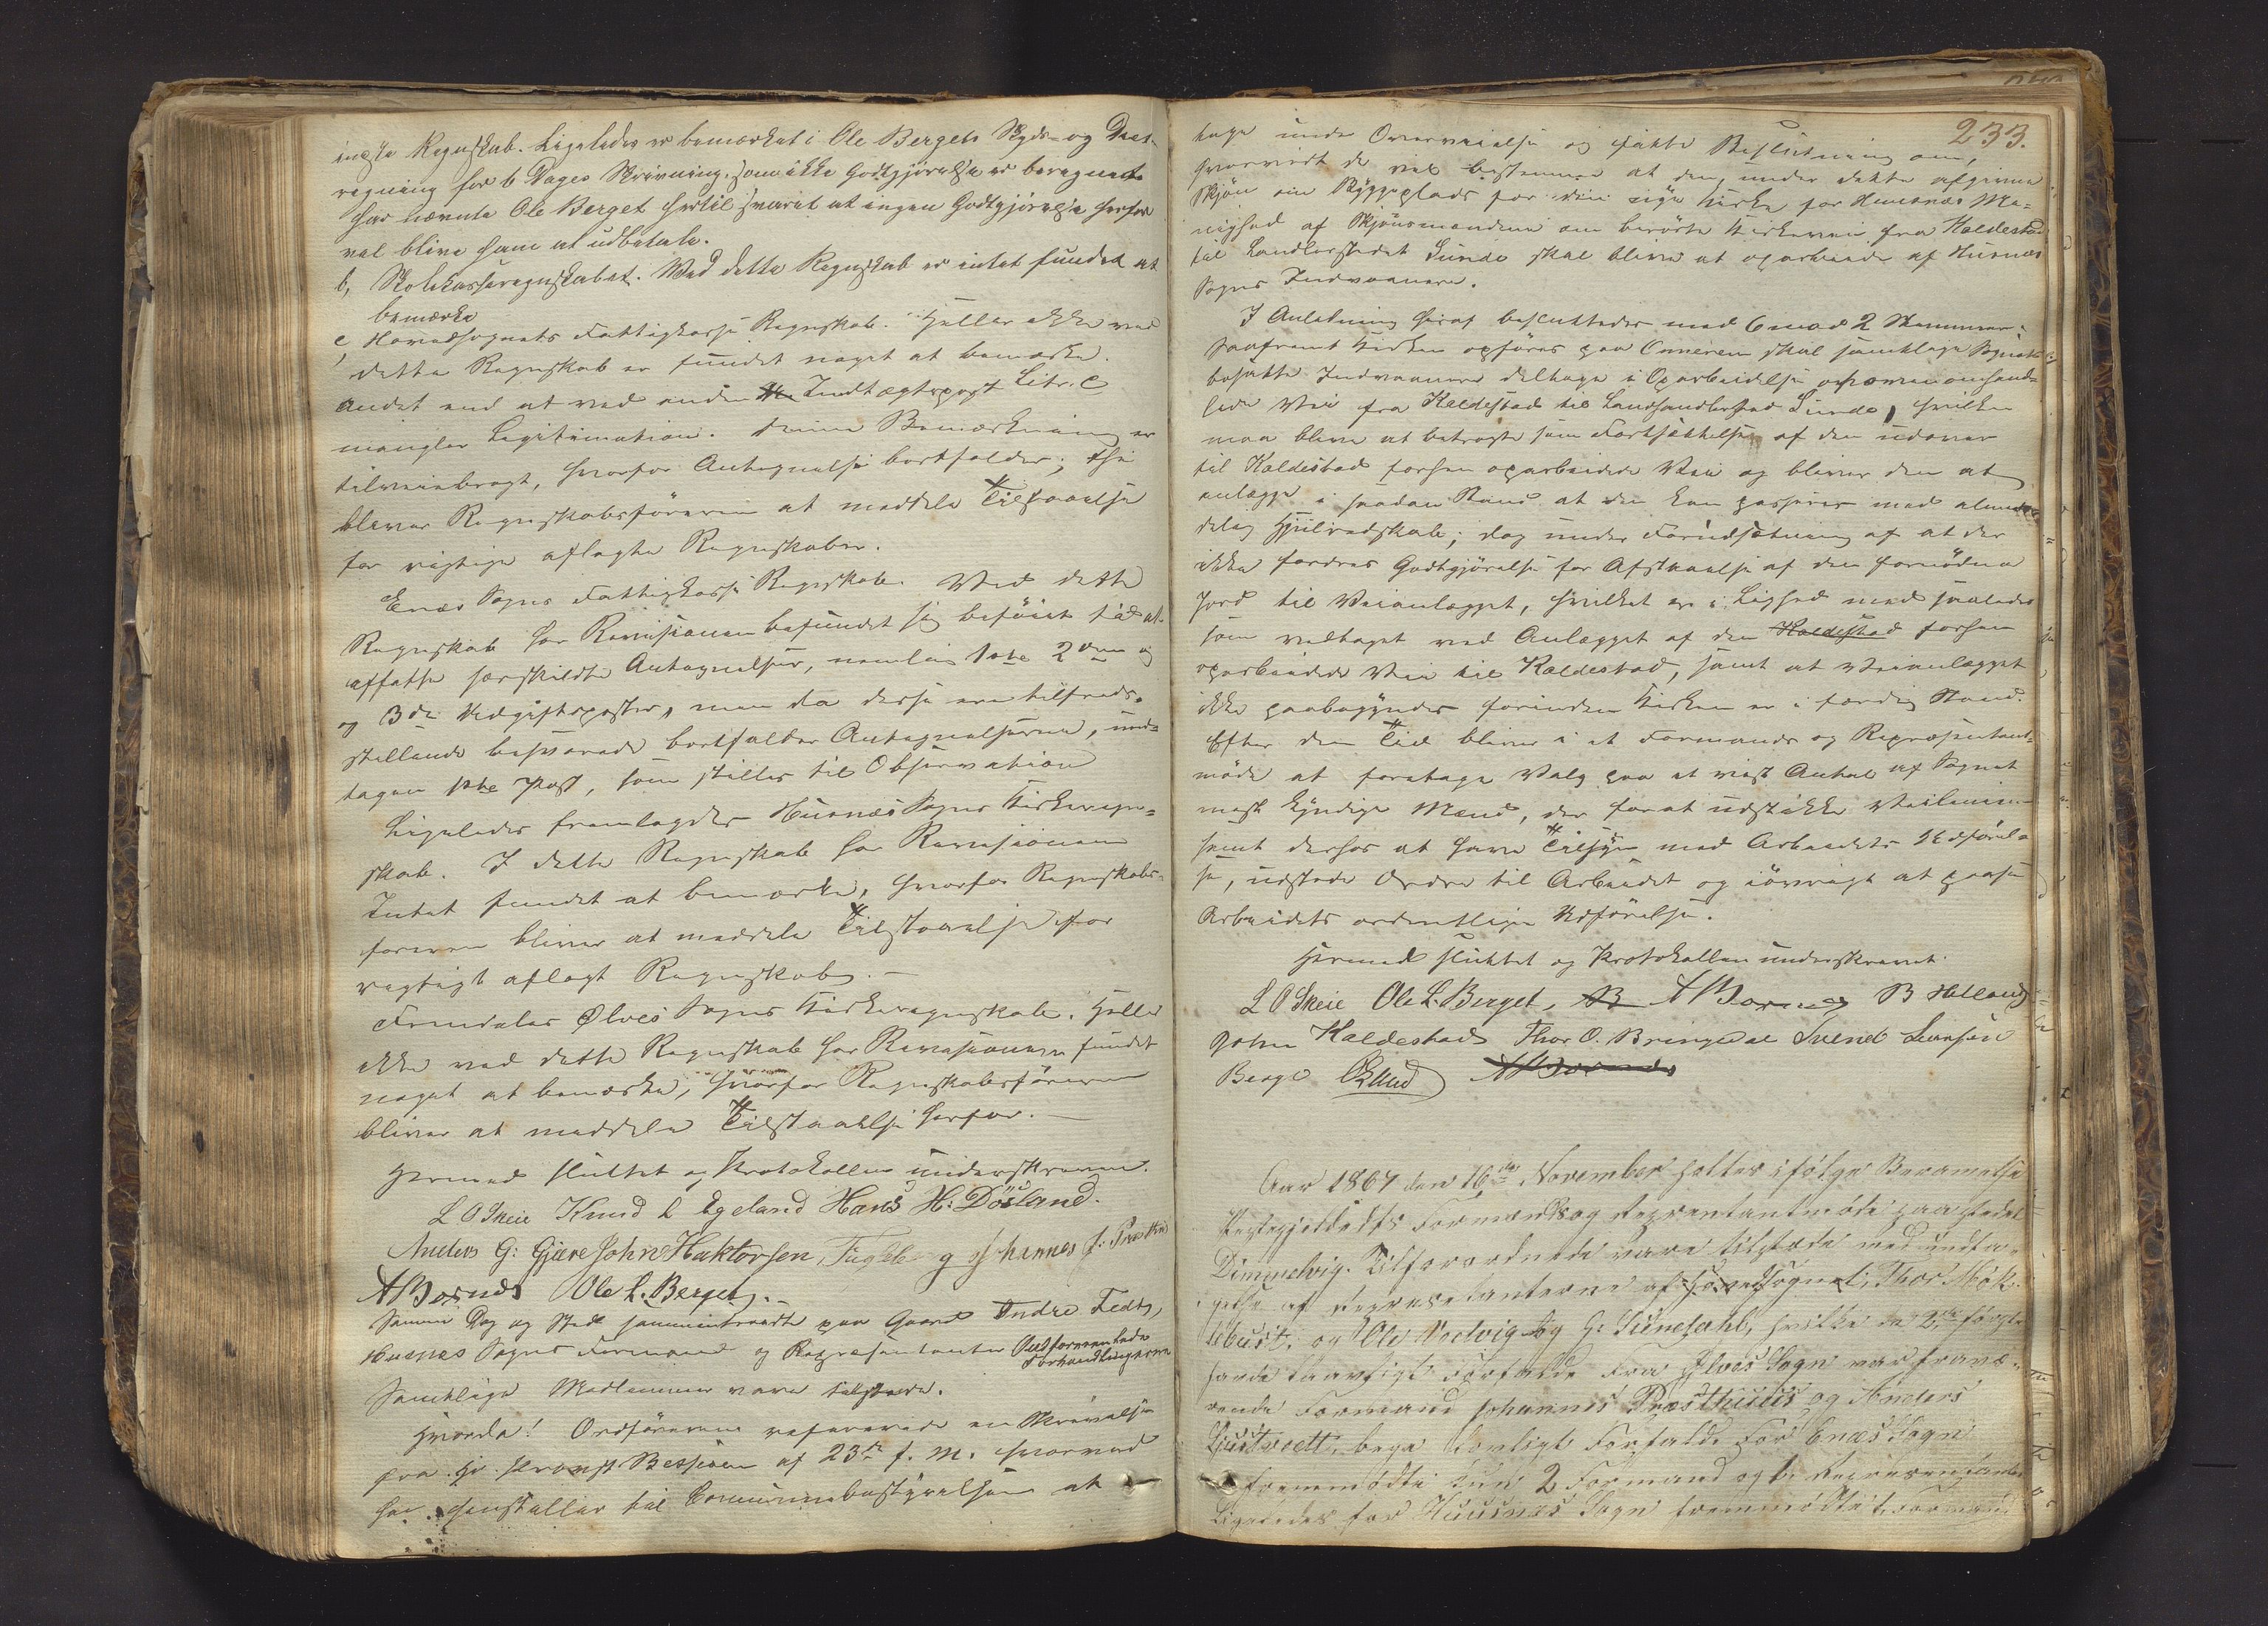 ingste Regnskab. Ligeledes er bemærket i Ole Bergets Skyds- og Diæt-
regning for 6 Dages Skrivning, som ikke Godtgjørelse er beregnet
har nævnte Ole Berget hertil svaret at ingen Godtgjørelse herfor
vil blive ham at udbetale.
b, Skolekasseregnskabet. Ved dette Regnskab er intet fundet at
bemærke
c, Hovedsognets Fattigkasse Regnskab. Heller ikke ved
dette Regnskab er fundet noget at bemærke.
Andet end at ved anden Indtægtspost Litr. C
mangler Legitimation. Denne Bemærkning er
tilveiebragt, hvorfor Antegnelse bortfalder; thi
bliver Regnskabsføreren at meddele Tilstaaelse
for rigtige aflagte Regnskaber.
Enæs Sogns Fattigkasse Regnskab. Ved dette
Regnskab har Revisionen befundet sig beføiet til at
affatte særskildte Antegnelser, nemlig 1ste 2den og
og 3die Udgiftsposter, men da disse ere tilfreds-
stillende besvarede bortfalder Antegnelserne, und-
tagen 1ste Post, som stilles til Observation
Ligeledes fremlagdes Huusnæs Sogns Kirkeregn-
skab. I dette Regnskab har Revisionen
Intet fundet at bemærke, hvorfor Regnskabs-
føreren bliver at meddele Tilstaaelse for
rigtigt aflagt Regnskab. —
Fremdeles Ølves Sogns Kirkeregnskab. Heller
ikke ved dette Regnskab har Revisionen fundet
noget at bemærke, hvorfor Regnskabsføreren
bliver at meddele Tilstaaelse herfor. —
Hermed sluttet og Protokollen underskreven.
L O Skeie Knud L Egeland Hans H: Døsland.
Anders G: Gjære John Haktorsen, Fugleberg Johannes J:
A Bornes Ole L. Berget. –
Samme Dag og Sted sammentraadte paa Gaard Indre Fedt,
Huusnes Sogns Formænd og Repræsentanter
Forhandlingerne
Samtlige Medlemmer vare tilstede.
Hvorda! Ordføreren refererede en Skrivelse
fra Hr. Provst Bessesen af 23de f. M. hvorved
han henstiller til Communebestyrelsen at
233.
tage under Overveielse og fatte Beslutning om,
hvorvidt de vil bestemme at den under dette afgivne
Skjøn om Byggeplads for den nye Kirke for Huusnæs Me-
nighed af Skjønsmændene om berørte Kirkevei fra Kaldestad
til Landhandlerstedet Sunde skal blive at oparbeide af Huusnæs
Sogns Indvaanere.
I Anledning heraf besluttedes med 6 mod 2 Stemmer:
saafremt Kirken opføres paa skal samtlige Sognets
besatte Indvaanere deltage i Oparbeidelse af ovenomhand-
lede Vei fra Kaldestad til Landhandlersted Sunde, hvilken
maa blive at betragte som Fortsættelse af den udover
til Kaldestad forhen oparbeidede Vei og bliver den at
anlægge i saadan Stand at den kan passeres med alminde
delig Hjulredskab; dog under Forudsætning af at der
ikke fordres Godtgjørelse for Afstaaelse af den fornødne
Jord til Veianlægget, hvilket er i Lighed med saaledes
som vedtaget ved Anlægget af den Kaldestad forhen
oparbeidede Vei til Kaldestad, samt at Veianlægget
ikke paabegyndes forinden Kirken er i færdig Stand.
Efter den Tid bliver i et Formands og Repræsentant-
møde at foretage Valg paa et vist Antal af Sognets
mest kyndige Mænd, der forat udstikke Veilinien
samt derhos at have Tilsyn med Arbeidets Udførel-
se, udstede Ordre til Arbeidet og iøvrigt at paase
Arbeidets ordentlige Udførelse.
Hermed sluttet og Protokollen underskrevet.
L O Skeie Ole L. Berget, B A Bornes B Helland
John Kaldestad Thor O. Bringedal Svend Larsen
Berge A Bornes
Aar 1867 den 16de November holttes ifølge Berammelse
Præstegjeldets Formænds og Representantmøde paa stedet
Dimmelvig. Tilforordnede vare tilstæde med undta-
gelse af Representanterne af Hovedsognet; Thor Møk-
lebust. og Ole Vedvig og G: Tunesahl, hvilke de 2de første
havde Lovligt Forfald. Fra Ølves Sogn var fravæ-
rende Formand Johannes Præsthuus og Anders
begge Lovligt Forfald. For Enæs Sogn
fremmødte kun 2 Formænd og 6 Representanter
Ligeledes for Huusnæs Sogn fremmødte 1 Formand